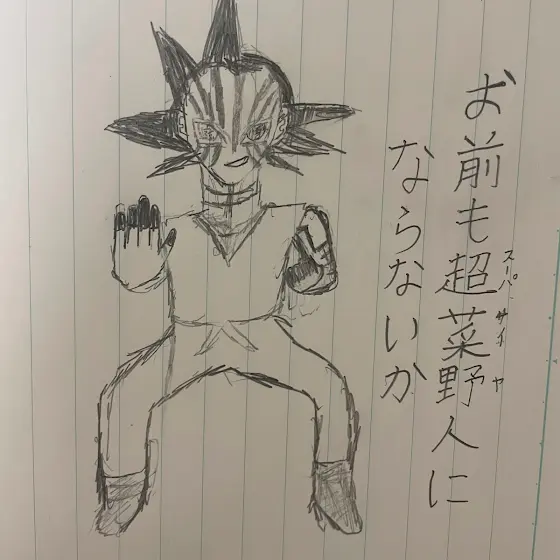 お前も超菜野人に
スーパーサイヤ
ならないか